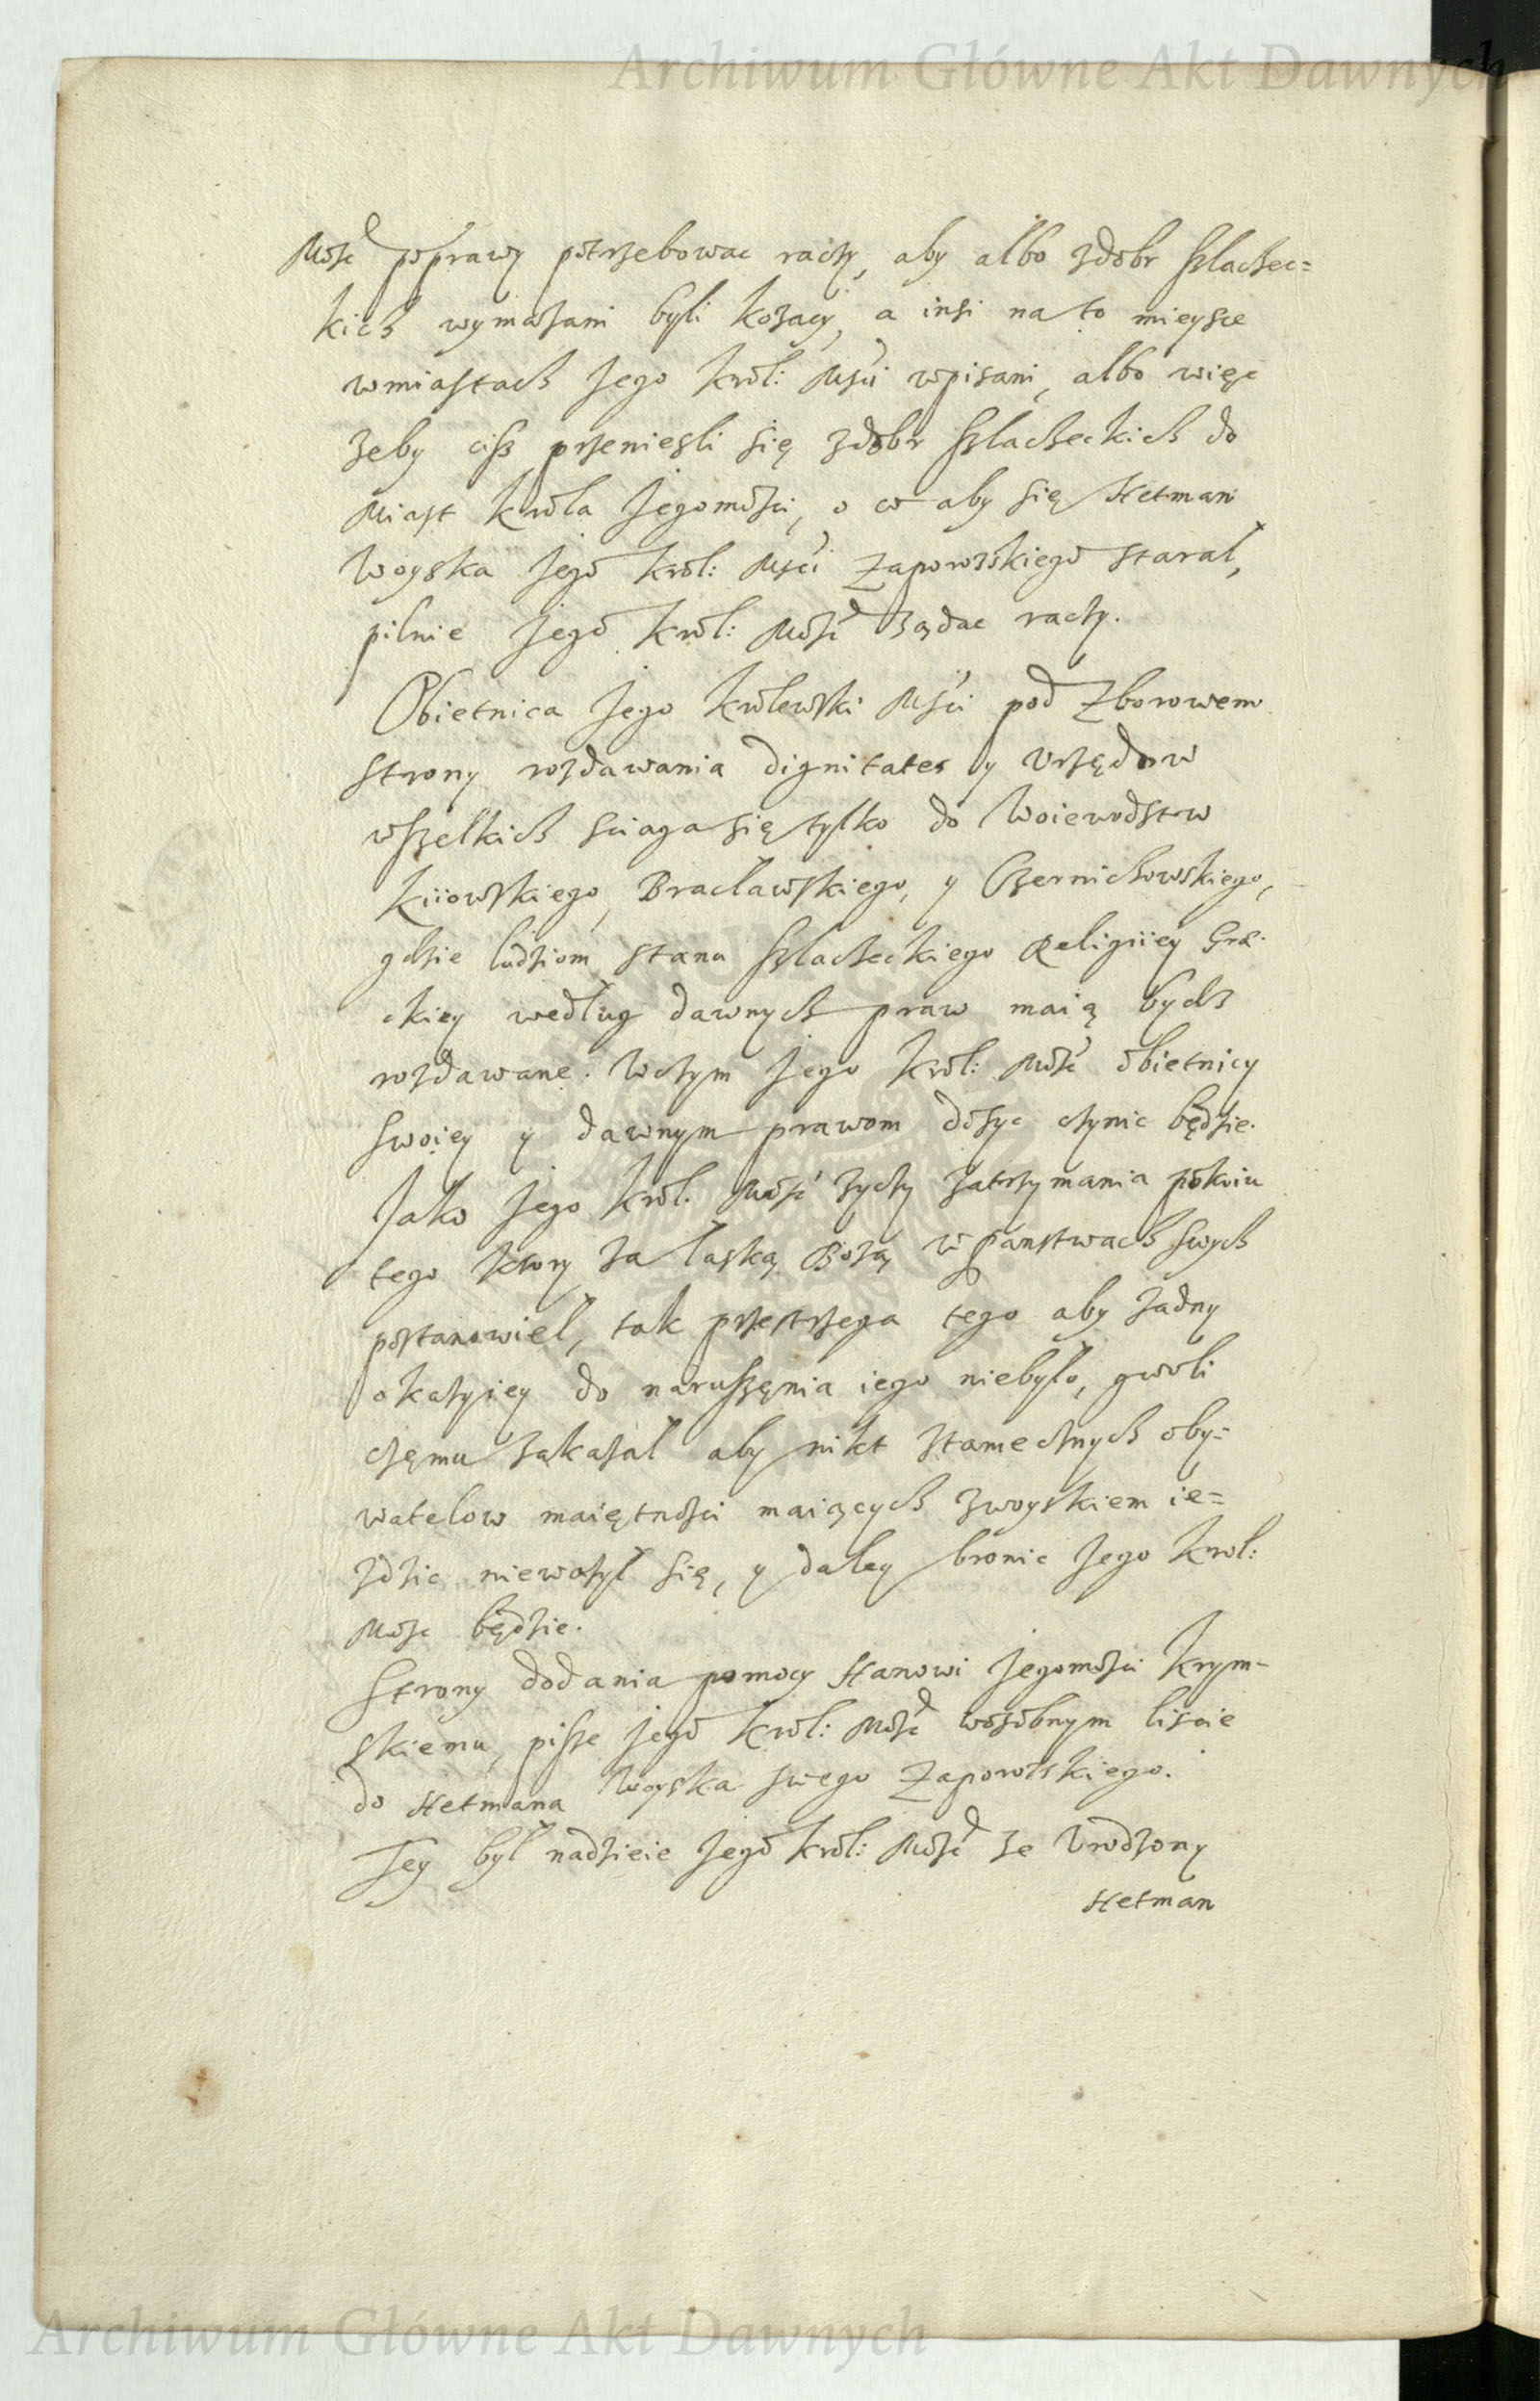 Archiwum Główne Akt Dawnych
Mość poprawy potrzebowac raczy, aby albo zdobr szlachec=
kich wymazani byli kozacy, a insi na to mieysce
w miastach Jego Krol: Msci wpisani, albo więc
zeby ciż przenieśli się zdobr szlacheckich do
Miast Krola Jegomości, o co aby się Hetman
Woyska Jego Krol: Msci Zaporozskiego staral,
pilnie Jego Krol: Mość ządac raczy.
Obietnica Jego Krolewski Msci pod Zborowem
strony rozdawania dignitates y vrzędow
wszelkich sciaga się tylko do Woiewodstw
Kiiowskiego, Bracławskiego, y Czernichowskiego,
gdzie ludziom stanu szlacheckiego Religiiey Grae:
ckiey według dawnych praw maią bydz
rozdawane. Wczym Jego Krol: Mość obietnicy
swoiey y dawnym prawom dosyc czynic będzie.
Jako Jego Krol. Mość zyczy zatrzymania pokoiu
tego ktory za łaską Bozą w Panstwach swych
postanowiel, tak przestrzega tego aby zadny
okazyiey do naruszęnia iego niebyło, gwoli
częmu zakazal aby nikt ztamecznych oby=
watelow maiętnosci maiących zwoyskiem ie=
zdzic niewazył się, y daley bronic Jego Krol:
Mosc będzie.
Strony dodania pomocy Hanowi Jegomości Krym-
skiemu, pisze Jego Krol: Mość wosobnym liscie
do Hetmana Woyska swego Zaporozskiego.
Tey był nadzieie Jego Krol: Mość ze Vrodzony
Hetman
Archiwum Główne Akt Dawnych